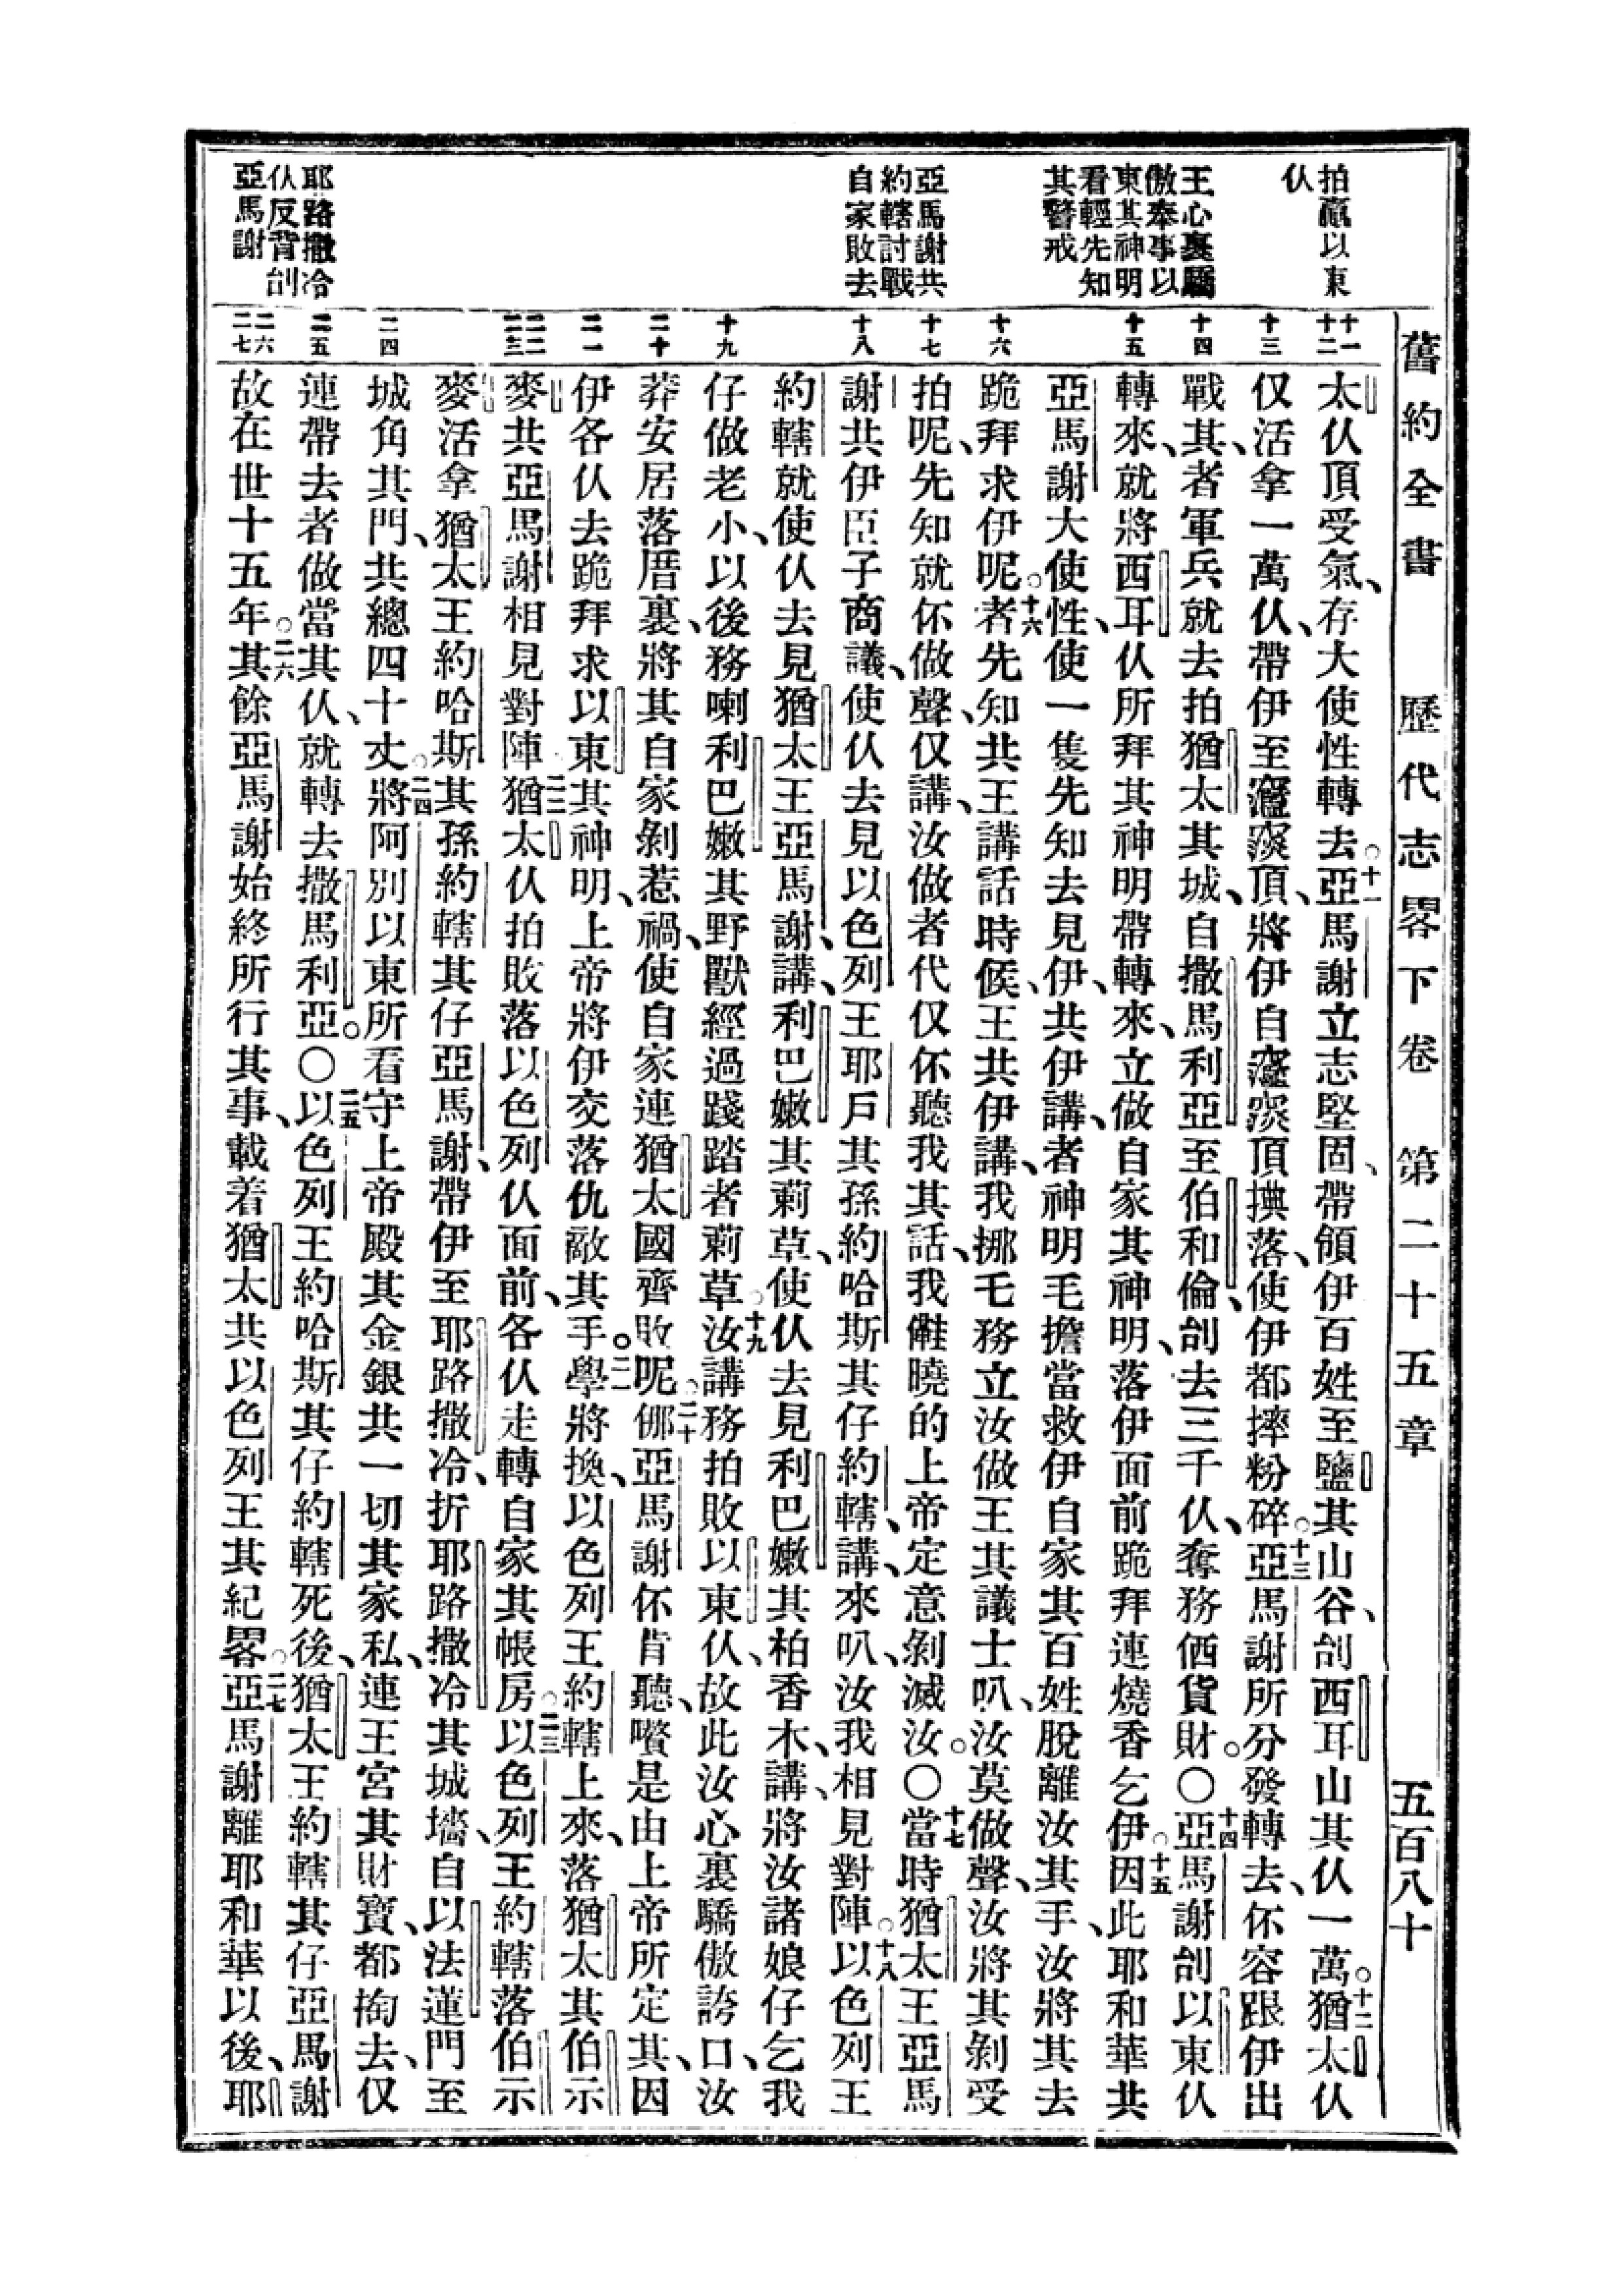 舊約全書 歷代志畧下卷 第二十五章 五百八十
拍贏以東
仈
王心裏驕
傲奉事以
東其神明
看輕先知
其警戒
亞馬謝共
約轄討戰
自家敗去
耶路撒冷
仈反背刣
亞馬謝
十一
十二
十三
十四
十五
十六
十七
十八
十九
二十
二一
二二
二三
二四
二五
二六
二七
太仈頂受氣、存大使性轉去。十一亞馬謝立志堅固、帶領伊百姓至鹽其山谷、刣西耳山其仈一萬。十二猶太仈
仅活拿一萬仈、帶伊至頂、將伊自頂㧣落、使伊都摔粉碎。十三亞馬謝所分發轉去、伓容跟伊出
戰其、其者軍兵就去拍猶太其城、自撒馬利亞至伯和倫、刣去三千仈、奪務価貨財。〇十四亞馬謝刣以東仈
轉來、就將西耳仈所拜其神明帶轉來、立做自家其神明、落伊面前跪拜連燒香乞伊。十五因此耶和華共
亞馬謝大使性、使一隻先知去見伊、共伊講、者神明毛擔當救伊自家其百姓脫離汝其手、汝將其去
跪拜求伊呢。十六者先知共王講話時候、王共伊講、我挪乇務立汝做王其議士叭、汝莫做聲、汝將其剝受
拍呢、先知就伓做聲、仅講、汝做者代仅伓聽我其話、我儺曉的上帝定意剝滅汝。〇十七當時猶太王亞馬
謝共伊臣子商議、使仈去見以色列王耶戶其孫約哈斯其仔約轄、講、來叭、汝我相見對陣。十八以色列王
約轄就使仈去見猶太王亞馬謝、講、利巴嫩其莿草、使仈去見利巴嫩其柏香木、講、將汝諸娘仔乞我
仔做老小、以後務喇利巴嫩其野獸經過踐踏者莿草。十九汝講務拍敗以東仈、故此汝心裏驕傲誇口、汝
莽安居落厝裏、將其自家剝惹禍、使自家連猶太國齊敗呢。二十㑚亞馬謝伓肯聽、嚽是由上帝所定其、因
伊各仈去跪拜求以東其神明、上帝將伊交落仇敵其手。二一學將換、以色列王約轄上來、落猶太其伯示
麥共亞馬謝相見對陣。二二猶太仈拍敗落以色列仈面前、各仈走轉自家其帳房。二三以色列王約轄落伯示
麥活拿猶太王約哈斯其孫約轄其仔亞馬謝、帶伊至耶路撒冷、折耶路撒冷其城墻、自以法蓮門至
城角其門、共總四十丈。二四將阿別以東所看守上帝殿其金銀共一切其家私、連王宮其財寶、都掏去、仅
連帶去者做當其仈、就轉去撒馬利亞。〇二五以色列王約哈斯其仔約轄死後、猶太王約轄其仔亞馬謝
故在世十五年。二六其餘亞馬謝始終所行其事、載着猶太共以色列王其紀畧。二七亞馬謝離耶和華以後、耶